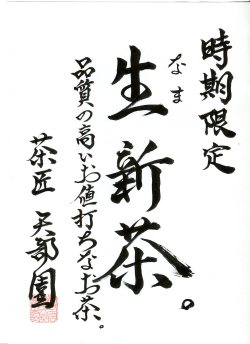 時期限定
なま
生新茶。
品質の高いお値打ちなお茶。
茶匠 天都園